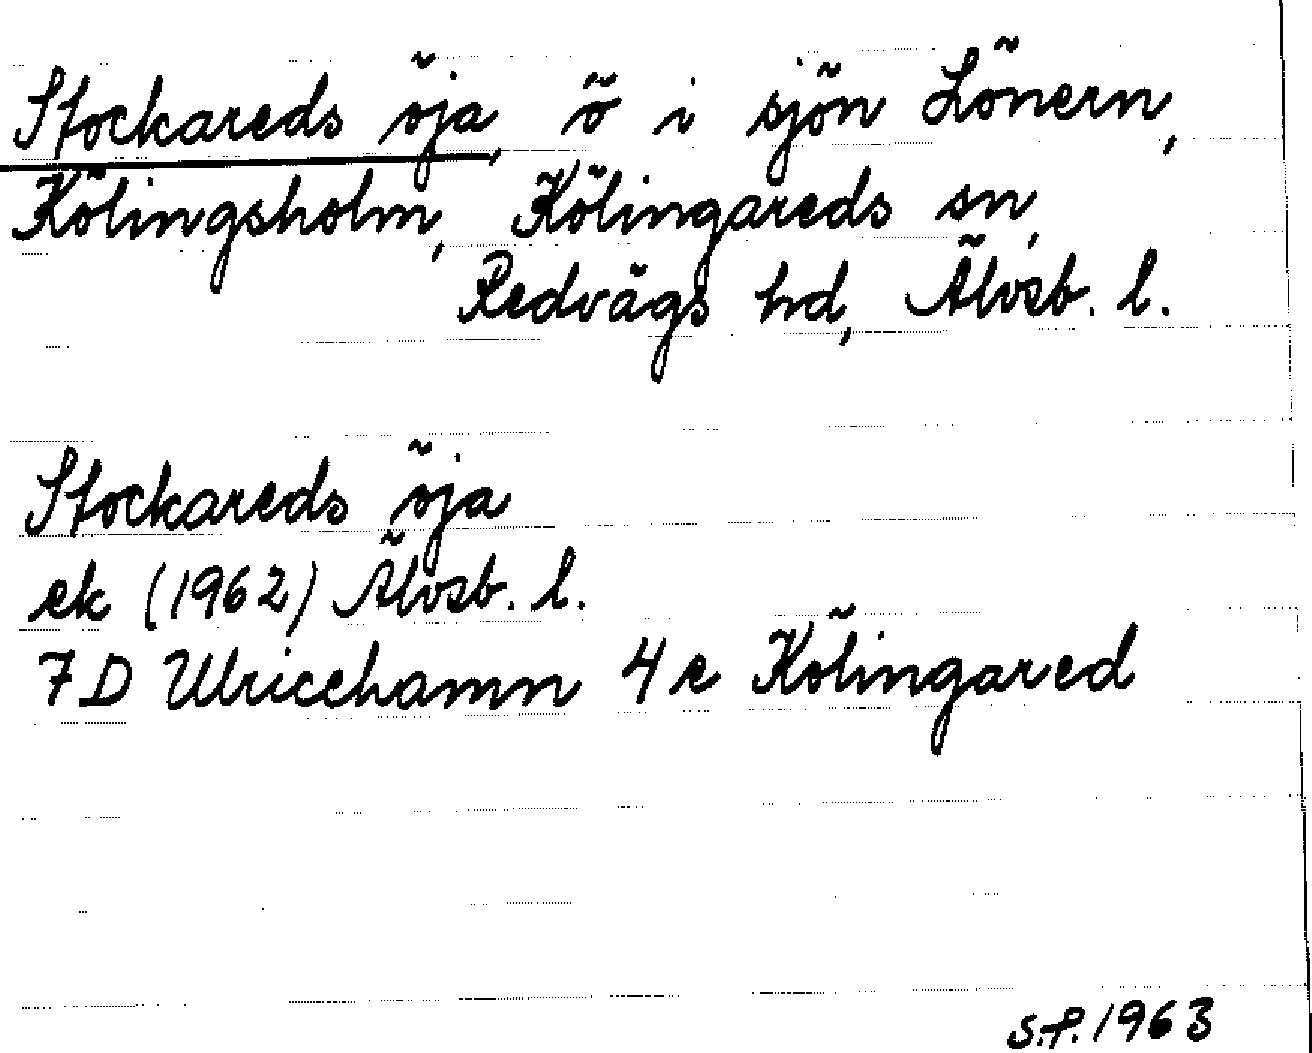 Stockareds öja, ö i sjön Lönern,
Kölingsholm, Kölingareds sn,
Redvägs hd, Älvsb. l.
Stockareds öja
ek (1962) Älvsb. l.
7D Ulricehamn 4e Kölingared
S.F. 1963